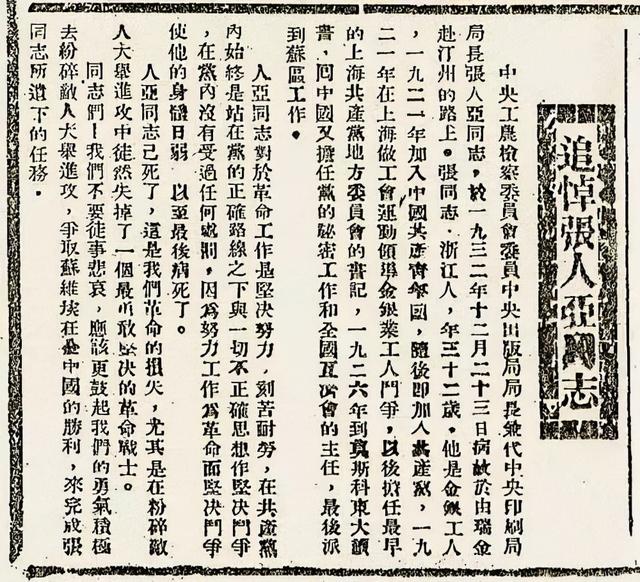 追悼張人亞同志
中央工農檢察委員會委員中央出版局局長兼代中央印刷局
局長張人亞同志，於一九三二年十二月二十三日病故於由瑞金
赴汀州的路上。張同志．浙江人，年三十二歲。他是金銀工人
，一九二一年加入中國共產青年團，隨後即加入共產黨，一九
二一年在上海做工會運動領導金銀業工人鬥爭，以後擔任最早
的上海共產黨地方委員會的書記，一九二六年到莫斯科東大讀
書，回中國又擔任黨的祕密工作和全國互濟會的主任，最後派
到蘇區工作。
人亞同志對於革命工作是堅決努力，刻苦耐勞，在共產黨
內始終是站在黨的正確路線之下與一切不正確思想作堅決鬥爭
，在黨內沒有受過任何處罰，因爲努力工作爲革命而堅決鬥爭
使他的身體日弱　以至最後病死了。
人亞同志已死了，這是我們革命的損失，尤其是在粉碎敵
人大舉進攻中徒然失掉了一個最勇敢堅決的革命戰士。
同志們！我們不要徒事悲哀，應該更鼓起我們的勇氣積極
去粉碎敵人大舉進攻，爭取蘇維埃在全中國的勝利，來完成張
同志所遺下的任務。